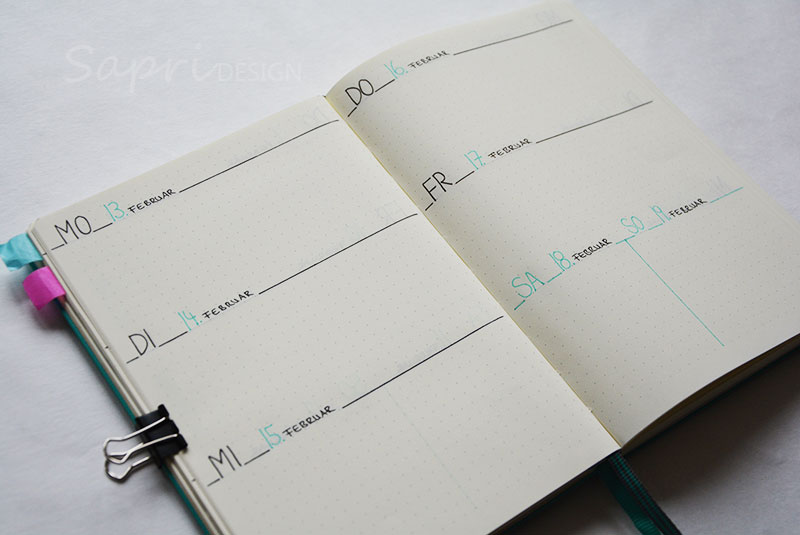 Sapri DESIGN
MO 13. FEBRUAR
DI 14. FEBRUAR
MI 15. FEBRUAR
DO 16. FEBRUAR
FR 17. FEBRUAR
SA 18. FEBRUAR SO 19. FEBRUAR